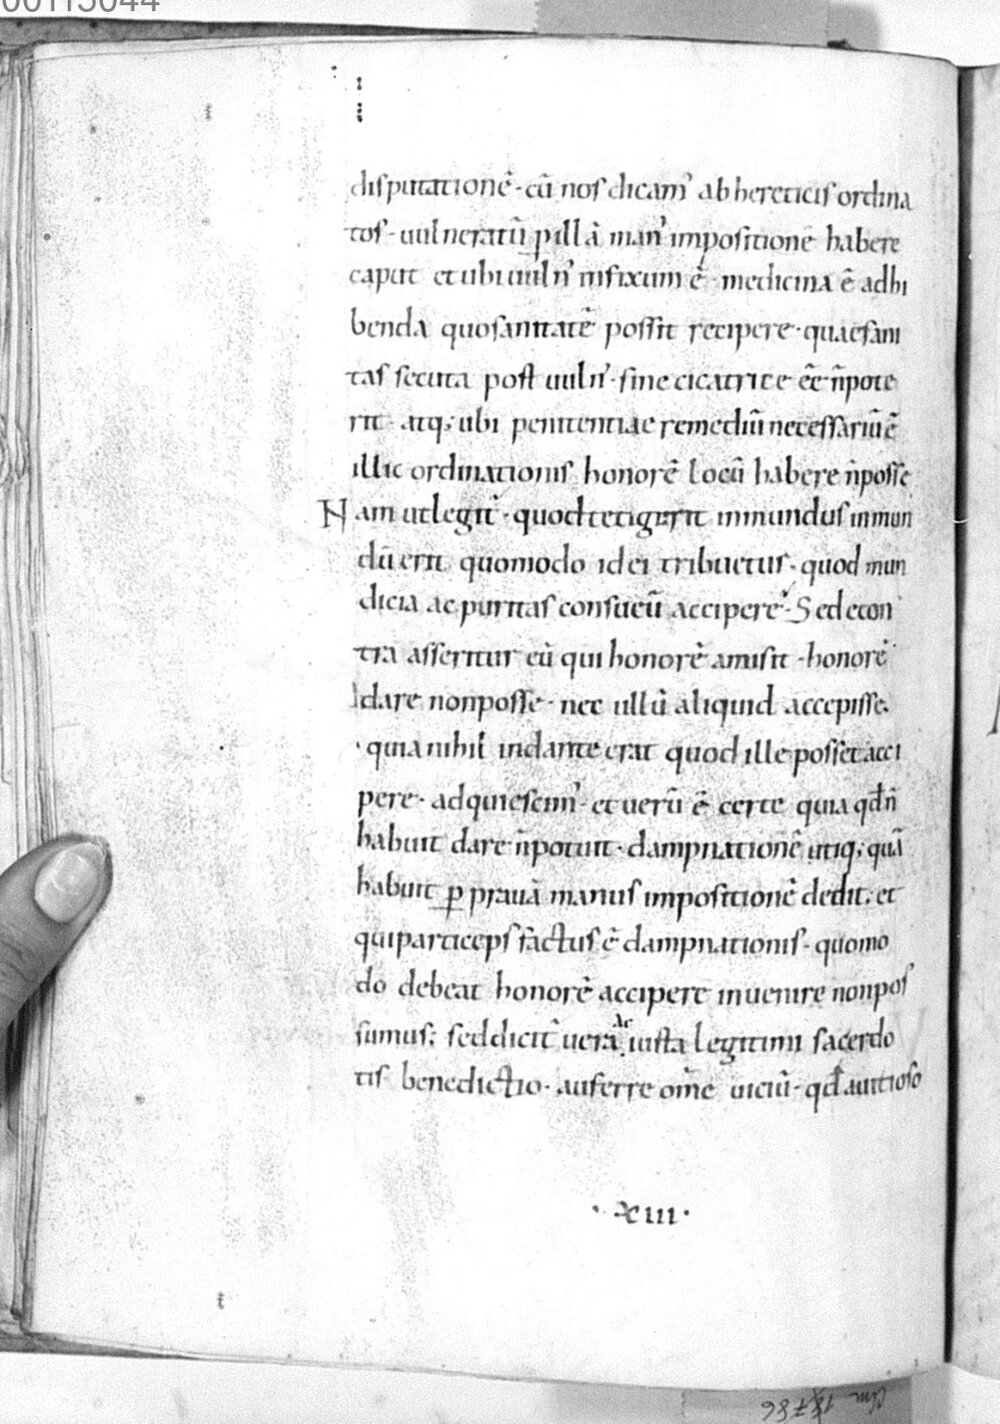 00115044
disputationē · cū nos dicam᾽ ab hereticis ordina
tos · uulneratū ꝑ illā man᾽ impositione habere
caput et ubi uuln᾽ infixum ē · medicina ē adhi
benda quo sanitatē possit recipere · quae sani
tas secuta post uuln᾽ · sine cicatrice eē n̄ pote
rit · atq; ubi penitentiae remediū necessariū ē
illic ordinationis honorē locū habere n̄ posse
Nam ut legit᾽ · quod tetigerit inmundus inmun
dū erit quomodo id ei tribuetur · quod mun
dicia ac puritas consueū accipere · Sed econ
tra asseritur eū qui honorē amisit · honorē
dare non posse · nec illū aliquid accepisse
· quia nihil in dante erat quod ille posset acci
pere · adquiescim᾽ · et uerū ē certe quia qđ n̄
habuit dare n̄ potuit · dampnationē utiq; quā
habuit ꝑ prauā manus impositionē dedit · et
qui particeps factus ē dampnationis · quomo
do debeat honorē accipere inuenire non pos
sumus: sed dicit᾽ uera ac iusta legitimi sacerdo
tis benedictio · auferre om̄e uiciū · qđ a uitioso
· XIII ·
Clm 18736